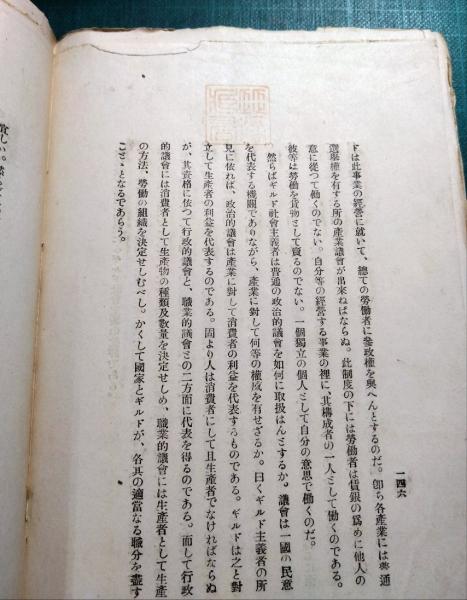 一四六
ドは此事業の經營に就いて、總ての勞働者に參政權を與へんとするのだ。卽ち各產業には普通
選擧權を有する所の產業議會が出來ねばならぬ。此制度の下には勞働者は賃銀の爲めに他人の
意に從つて働くのでない。自分等の經營する事業の裡に、其構成者の一人として働くのである。
彼等は勞働を貨物として賣るのでない。一個獨立の個人として自分の意思で働くのだ。
然らばギルド社會主義者は普通の政治的議會を如何に取扱はんとするか。議會は一國の民意
を代表する機關でありながら、產業に對して何等の權威を有せざるか。曰くギルド主義者の所
見に依れば、政治的議會は產業に對して消費者の利益を代表するものである。ギルドは之と對
立して生產者の利益を代表するのである。固より人は消費者にして且生產者でなければならぬ
が、其資格に依つて行政的議會と、職業的議會との二方面に代表を得るのである。而して行政
的議會には消費者として生產物の種類及數量を決定せしめ、職業的議會には生產者として生產
の方法、勞働の組織を決定せしむべし。かくして國家とギルドが、各其の適當なる職分を盡す
こととなるであらう。